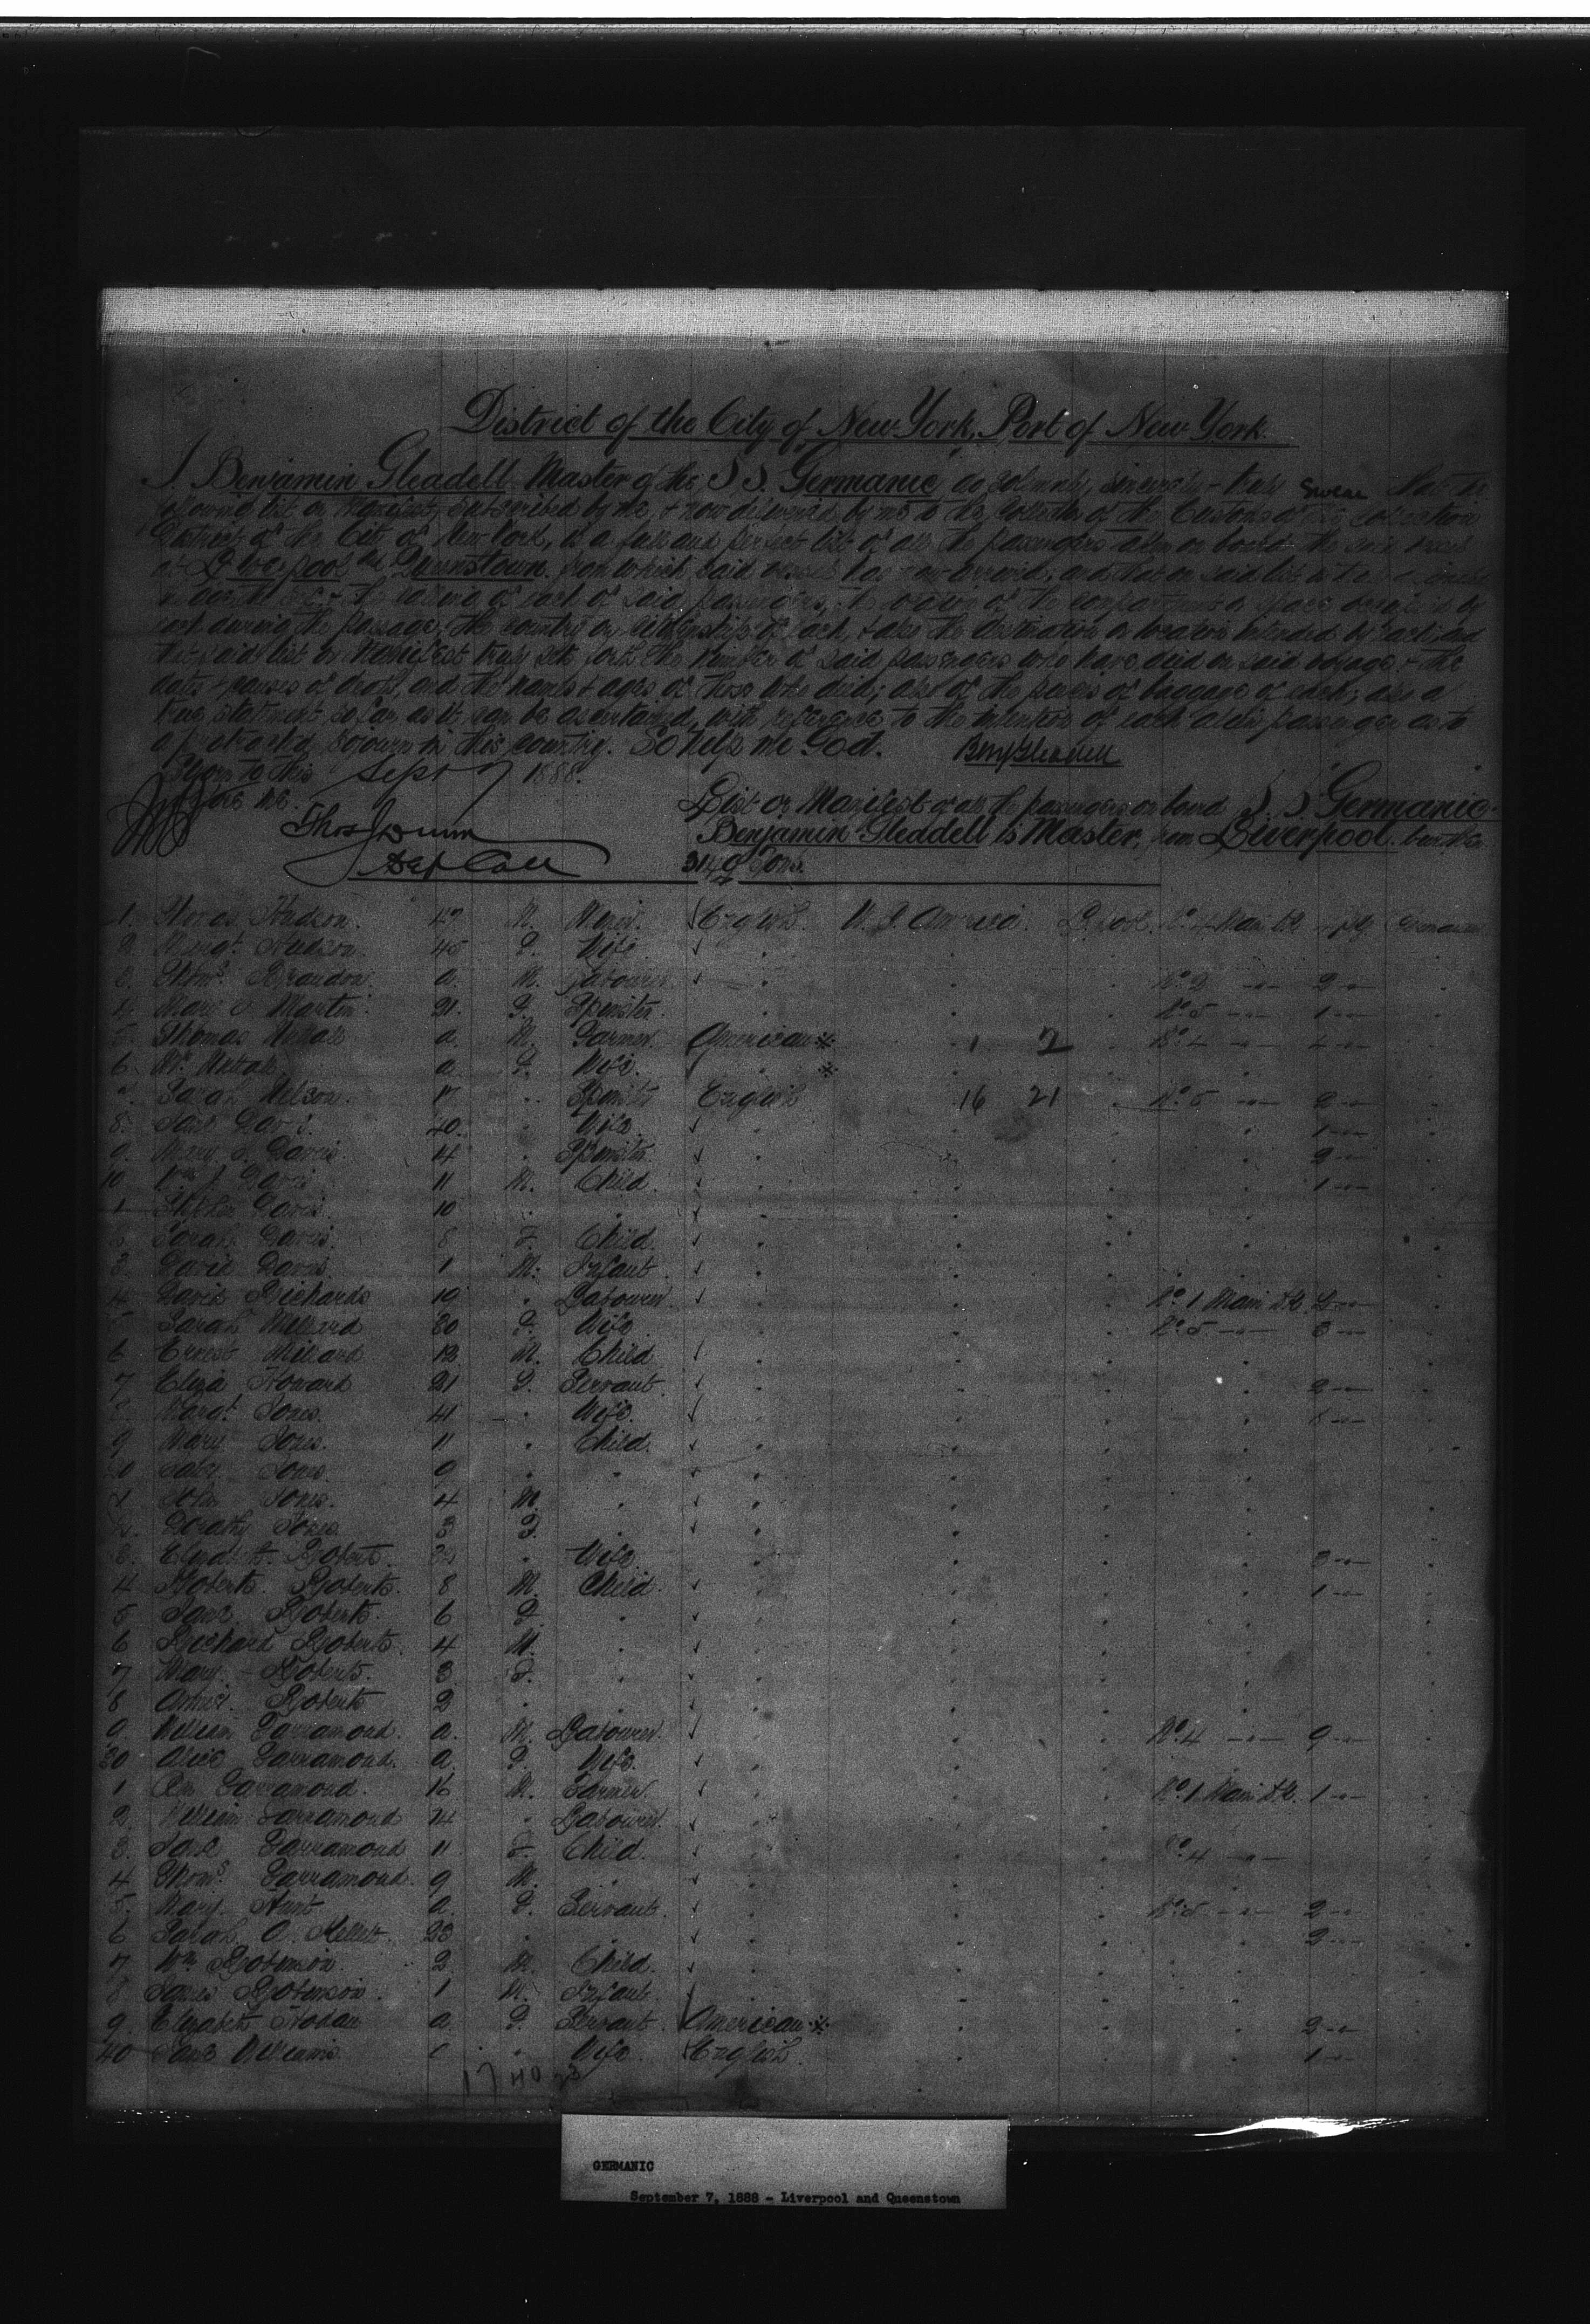 District of the City of New York, Port of New York.
I Benjamin Gleadell Master of the S.S. Germanic do solemnly, sincerely & truly swear that the
following list or manifest, subscribed by me, & now delivered by me to the Collector of the Customs of the collection
District of the City of New York, is a full and perfect list of all the passengers taken on board the said vessel
at Liverpool and Queenstown from which said vessel has now arrived; and that on said list is
the calling of each of said passengers, the location of the compartment or space occupied by
each during the passage, the country or citizenship of each, & also the destination or location intended by each; and
that said list or manifest truly sets forth the number of said passengers who have died on said voyage & the
dates & causes of death, and the names & ages of those who died; also of the pieces of baggage of each; also a
true statement so far as it can be ascertained, with reference to the intention of each alien passenger as to
a protracted sojourn in this country. So help me God. Benj Gleadell
Sworn to this Sept 7 1888.
before me
Thos J Dunn
Dep Coll
List or Manifest of all the passengers on board S.S. Germanic
Benjamin Gleadell is Master, from Liverpool
3140 Tons.
1. Thomas Hudson. 47 M. English. U.S. America. L'pool. No. 4 Main Dk
2. Margt. Hudson. 45 F. Wife
3. Thoms. Brandon. a. M. Labourer No. 2 2
4. Martin 21. F. Spinster. No. 5 1
5. Thomas a. M. Farmer. American 1 2 No. 4 4
6. a F. Wife.
7. Sarah Nelson. 17 Spinster English 16 21 No. 5 2
8. Davis. 40. Wife. 1
9. Mary Davis 14 Spinster. 2
10 Davis 11 M. Child. 1
1 Davis. 10
2 Sarah Davis. 8 F. Child.
3. David Davis. 1 M. Infant
4 David Richards 10 Labourer. No. 1 Main Dk
5 Sarah Millard 30 F. Wife No. 5 3
6 Ernest Millard 12 M. Child
7 Eliza Howard 21 F. Servant. 2
8 Margt. Jones. 41 Wife.
9 Mary Jones. 11 Child.
20 Jones 9
1 John Jones. 4 M.
2. Dorothy Jones. 3 F.
3. Elizabeth Roberts. Wife. 3
4 Roberts. Roberts. 8 M. Child. 1
5 Jane Roberts. 6 F.
6 Richard Roberts. 4 M.
7 Mary Roberts. 3 F.
8 Annie Roberts 2
9. William Farramond. a. M. Labourer. No. 4 9
30 Alice Farramond. a. F. Wife.
1 Farramond. 16 M. Farmer. No. 1 Main Dk. 1
2. William Farramond 14 Labourer.
3. Jane Farramond 11 F. Child. No. 4
4 Thoms. Farramond. 9 M.
5. Mary Hunt a. F. Servant. No. 5 2
6 Sarah A. Kellett. 23 2
7 Wm. Robinson. 2 M. Child.
8 James Robinson. 1 M. Infant
9. Elizabeth a. F. Servant American 2
40 Jane Williams. Wife English. 1
17 40 23
GERMANIC
September 7, 1888 - Liverpool and Queenstown